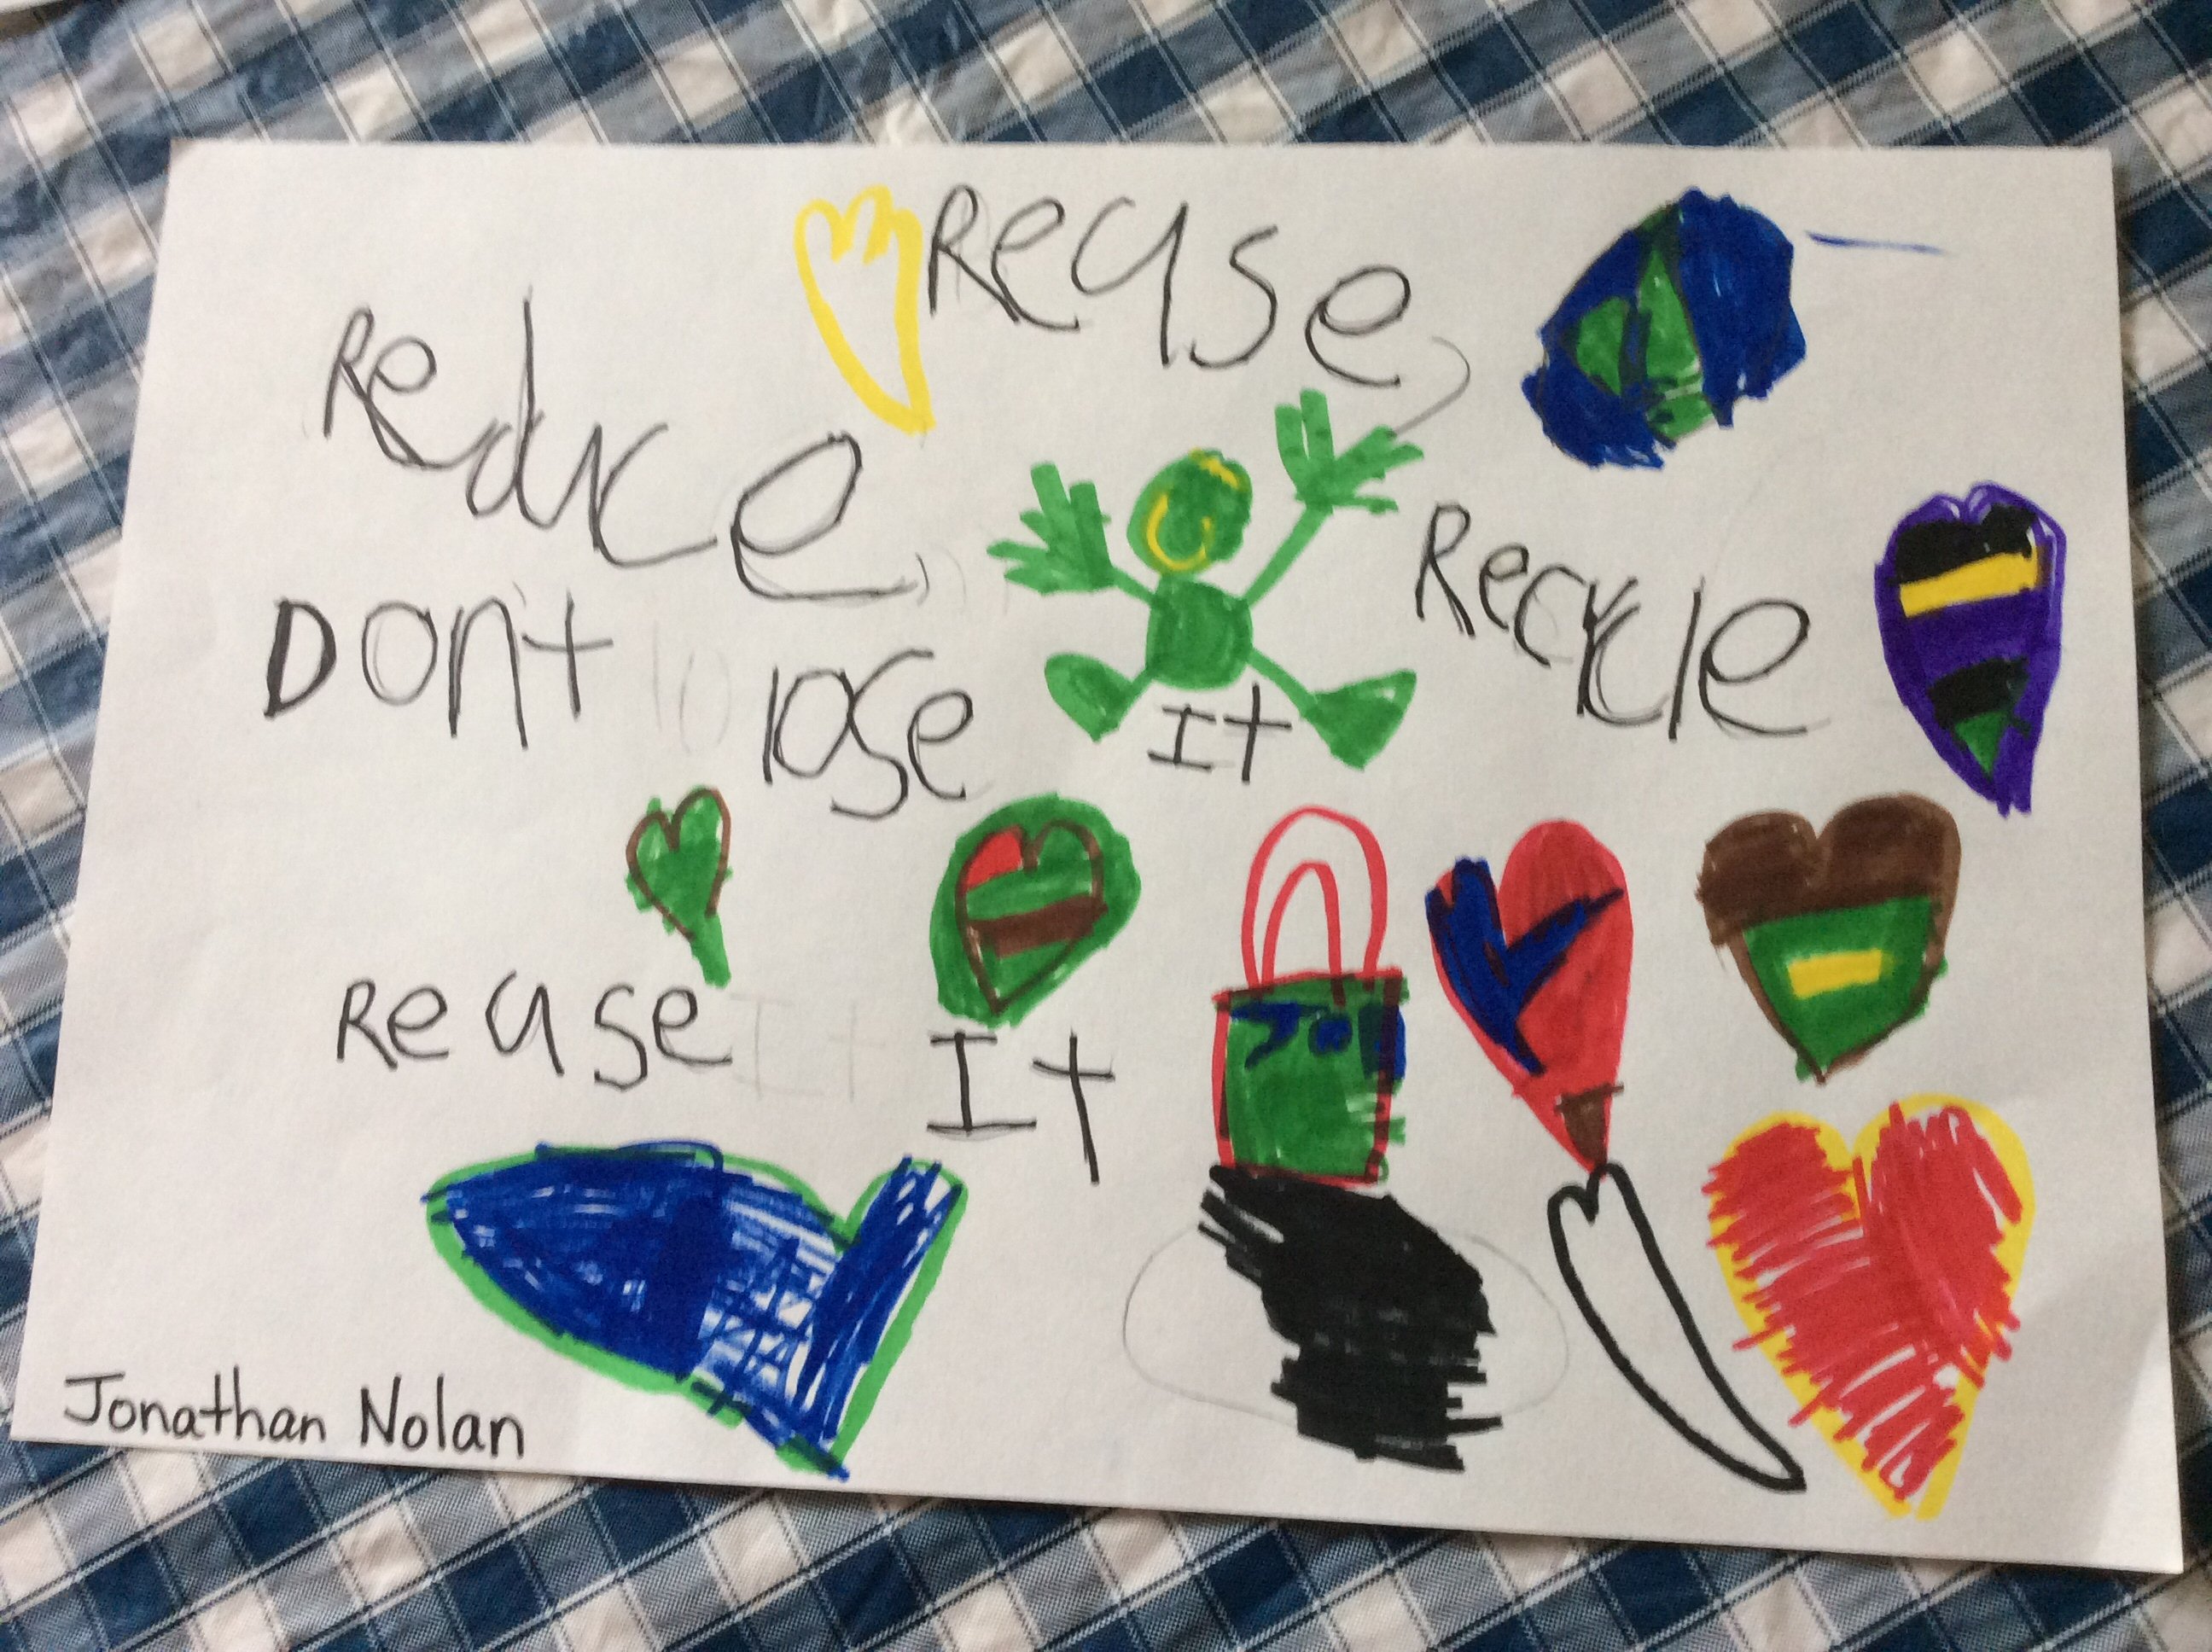 Reduce, Reuse, Recycle
Don't lose It
Reuse It
Jonathan Nolan